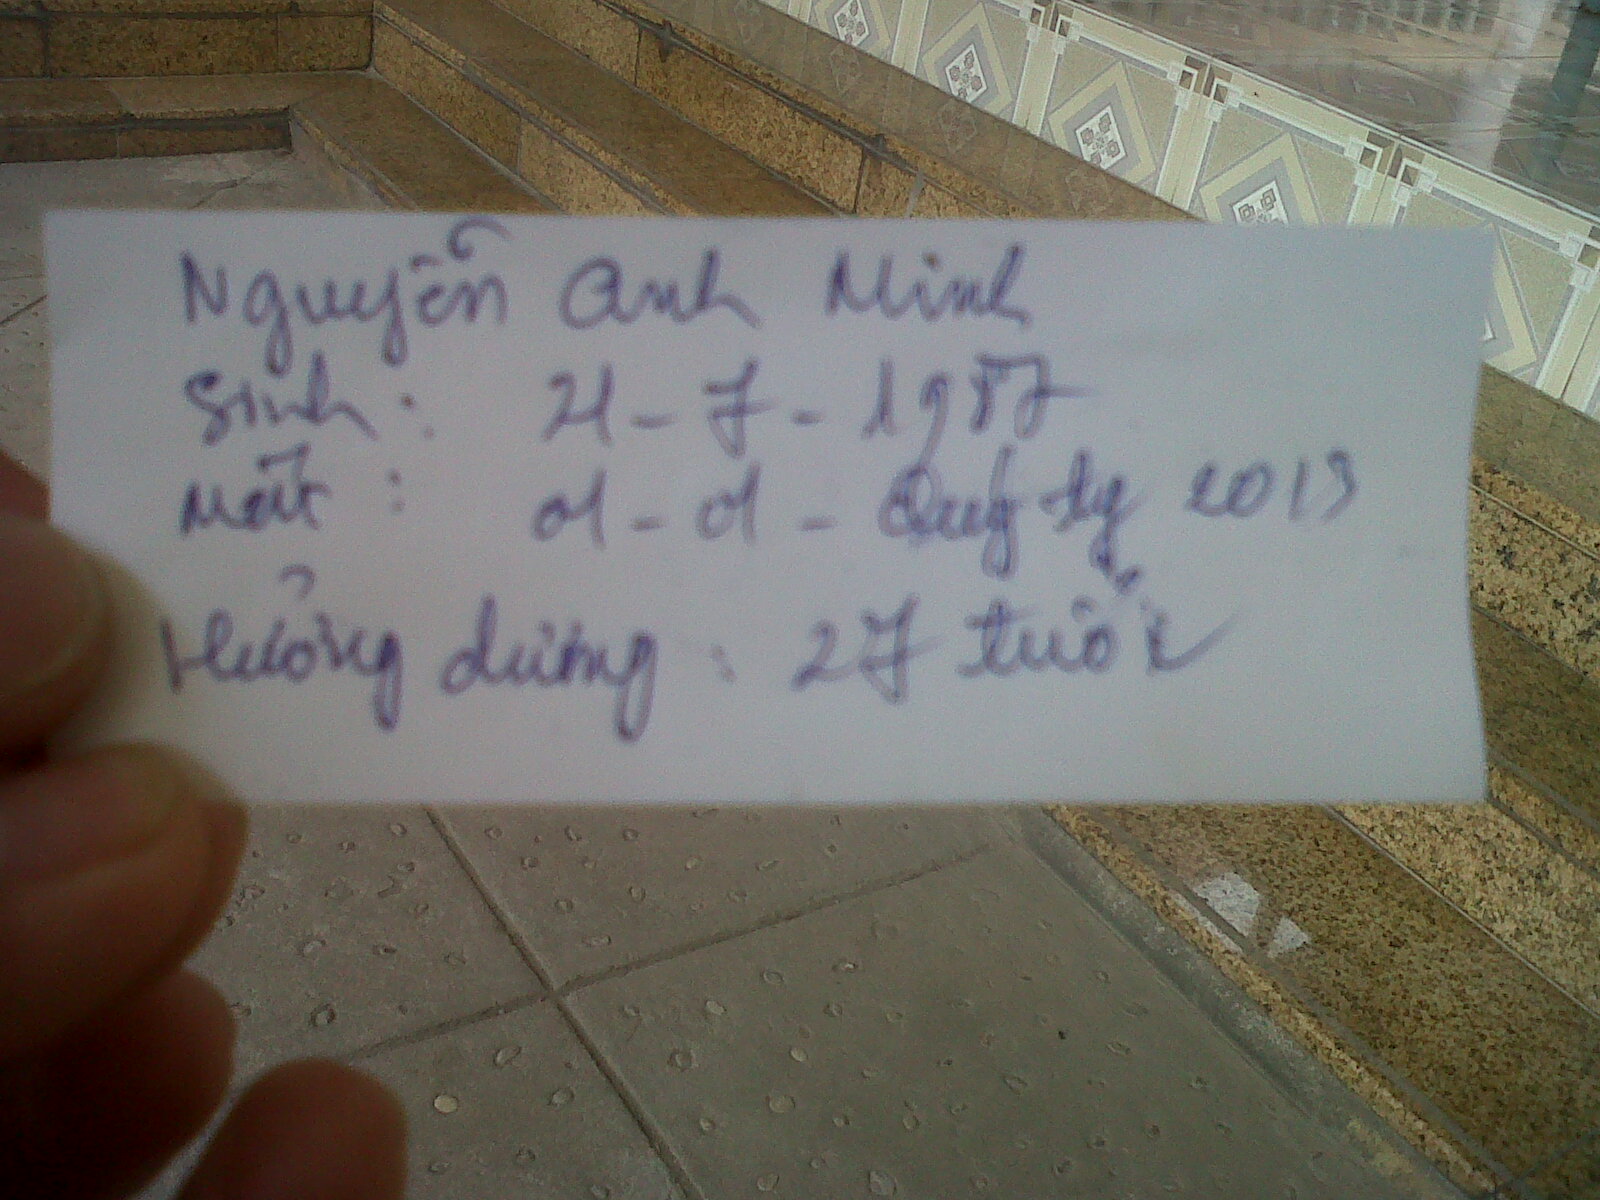 Nguyễn Anh Minh
Sinh: 21-7-1987
Mất: 01-01-Quý Tỵ 2013
Hưởng dương: 27 tuổi